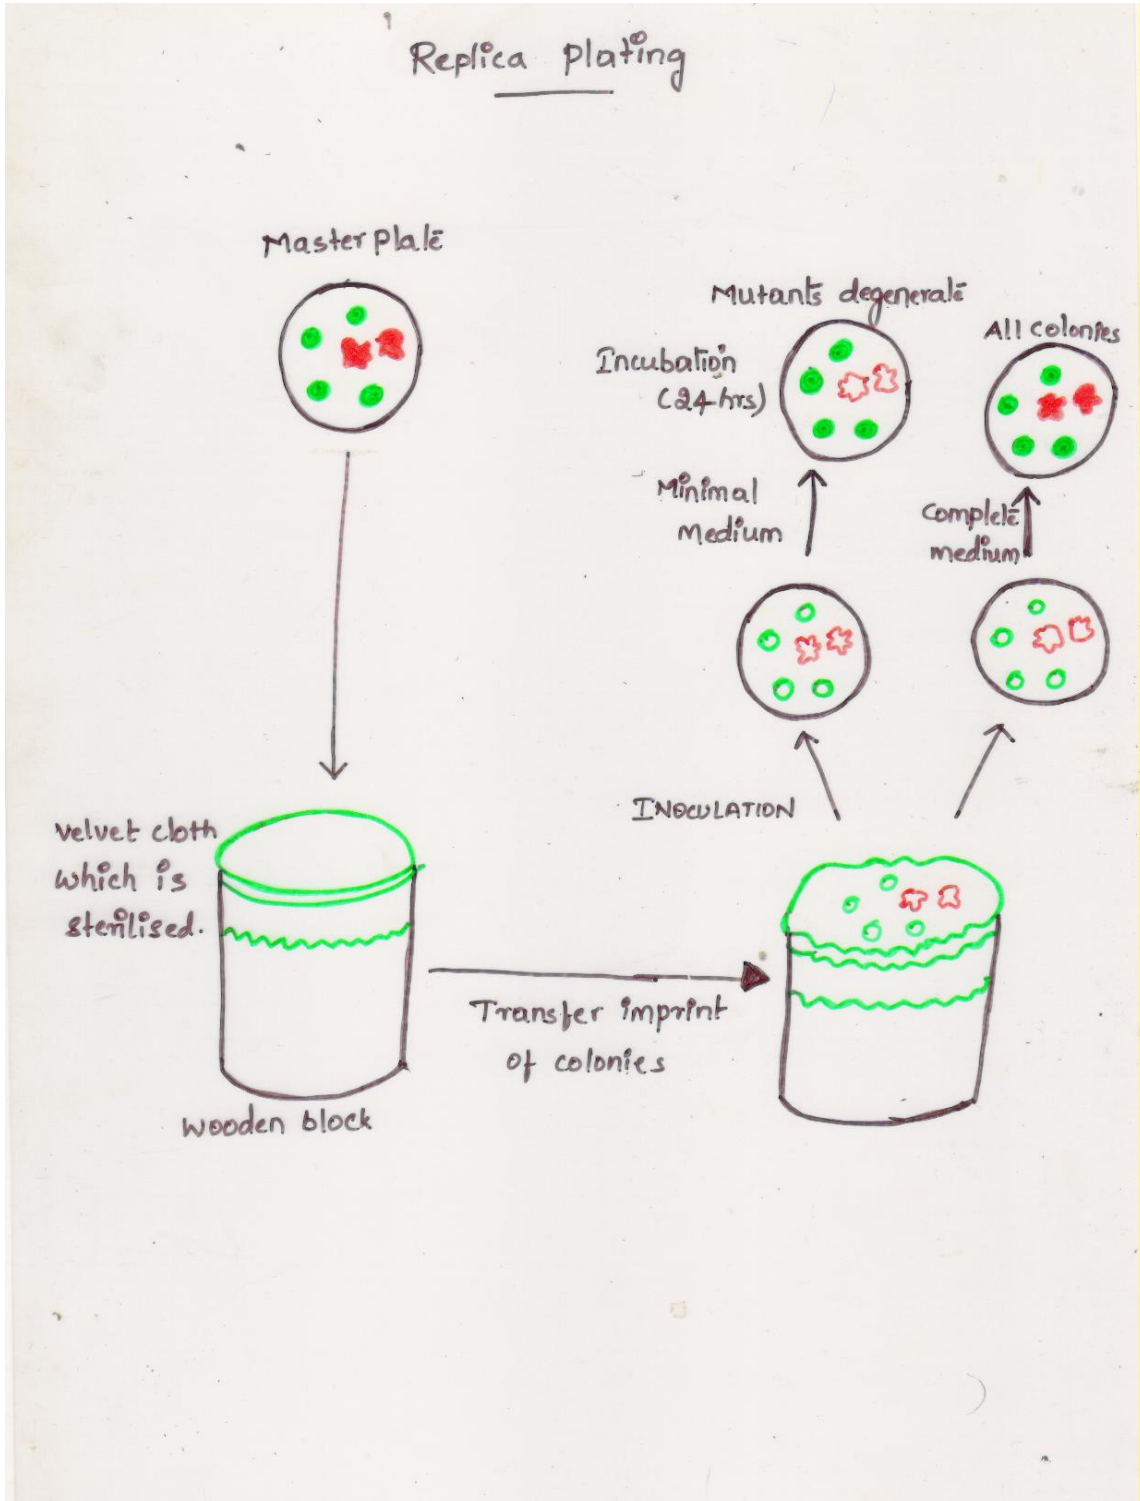 Replica plating
Master plate
Mutants degenerate
All colonies
Incubation
(24 hrs)
Minimal
medium
Complete
medium
INOCULATION
velvet cloth
which is
sterilised.
Transfer imprint
of colonies
wooden block